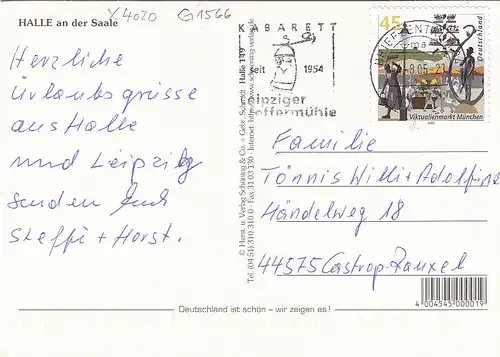 HALLE an der Saale
Y4020 G1566
Herzliche
Urlaubsgrüsse
aus Halle
und Leipzig
senden Euch
Steffi + Horst.
KABARETT
seit 1954
Leipziger
Pfeffermühle
BRIEFZENTRUM
45
Deutschland
Viktualienmarkt München
Familie
Tönnis Willi + Adolfine
Händelweg 18
44575 Castrop-Rauxel
© Horst u. Verlag Schöning & Co. + Gebr. Schmidt · Halle 149
Tel. (04 51) 310 310 Fax 31 03 130 · Internet: http://www.schoening-verlag.de
4 004545 000019
Deutschland ist schön – wir zeigen es !